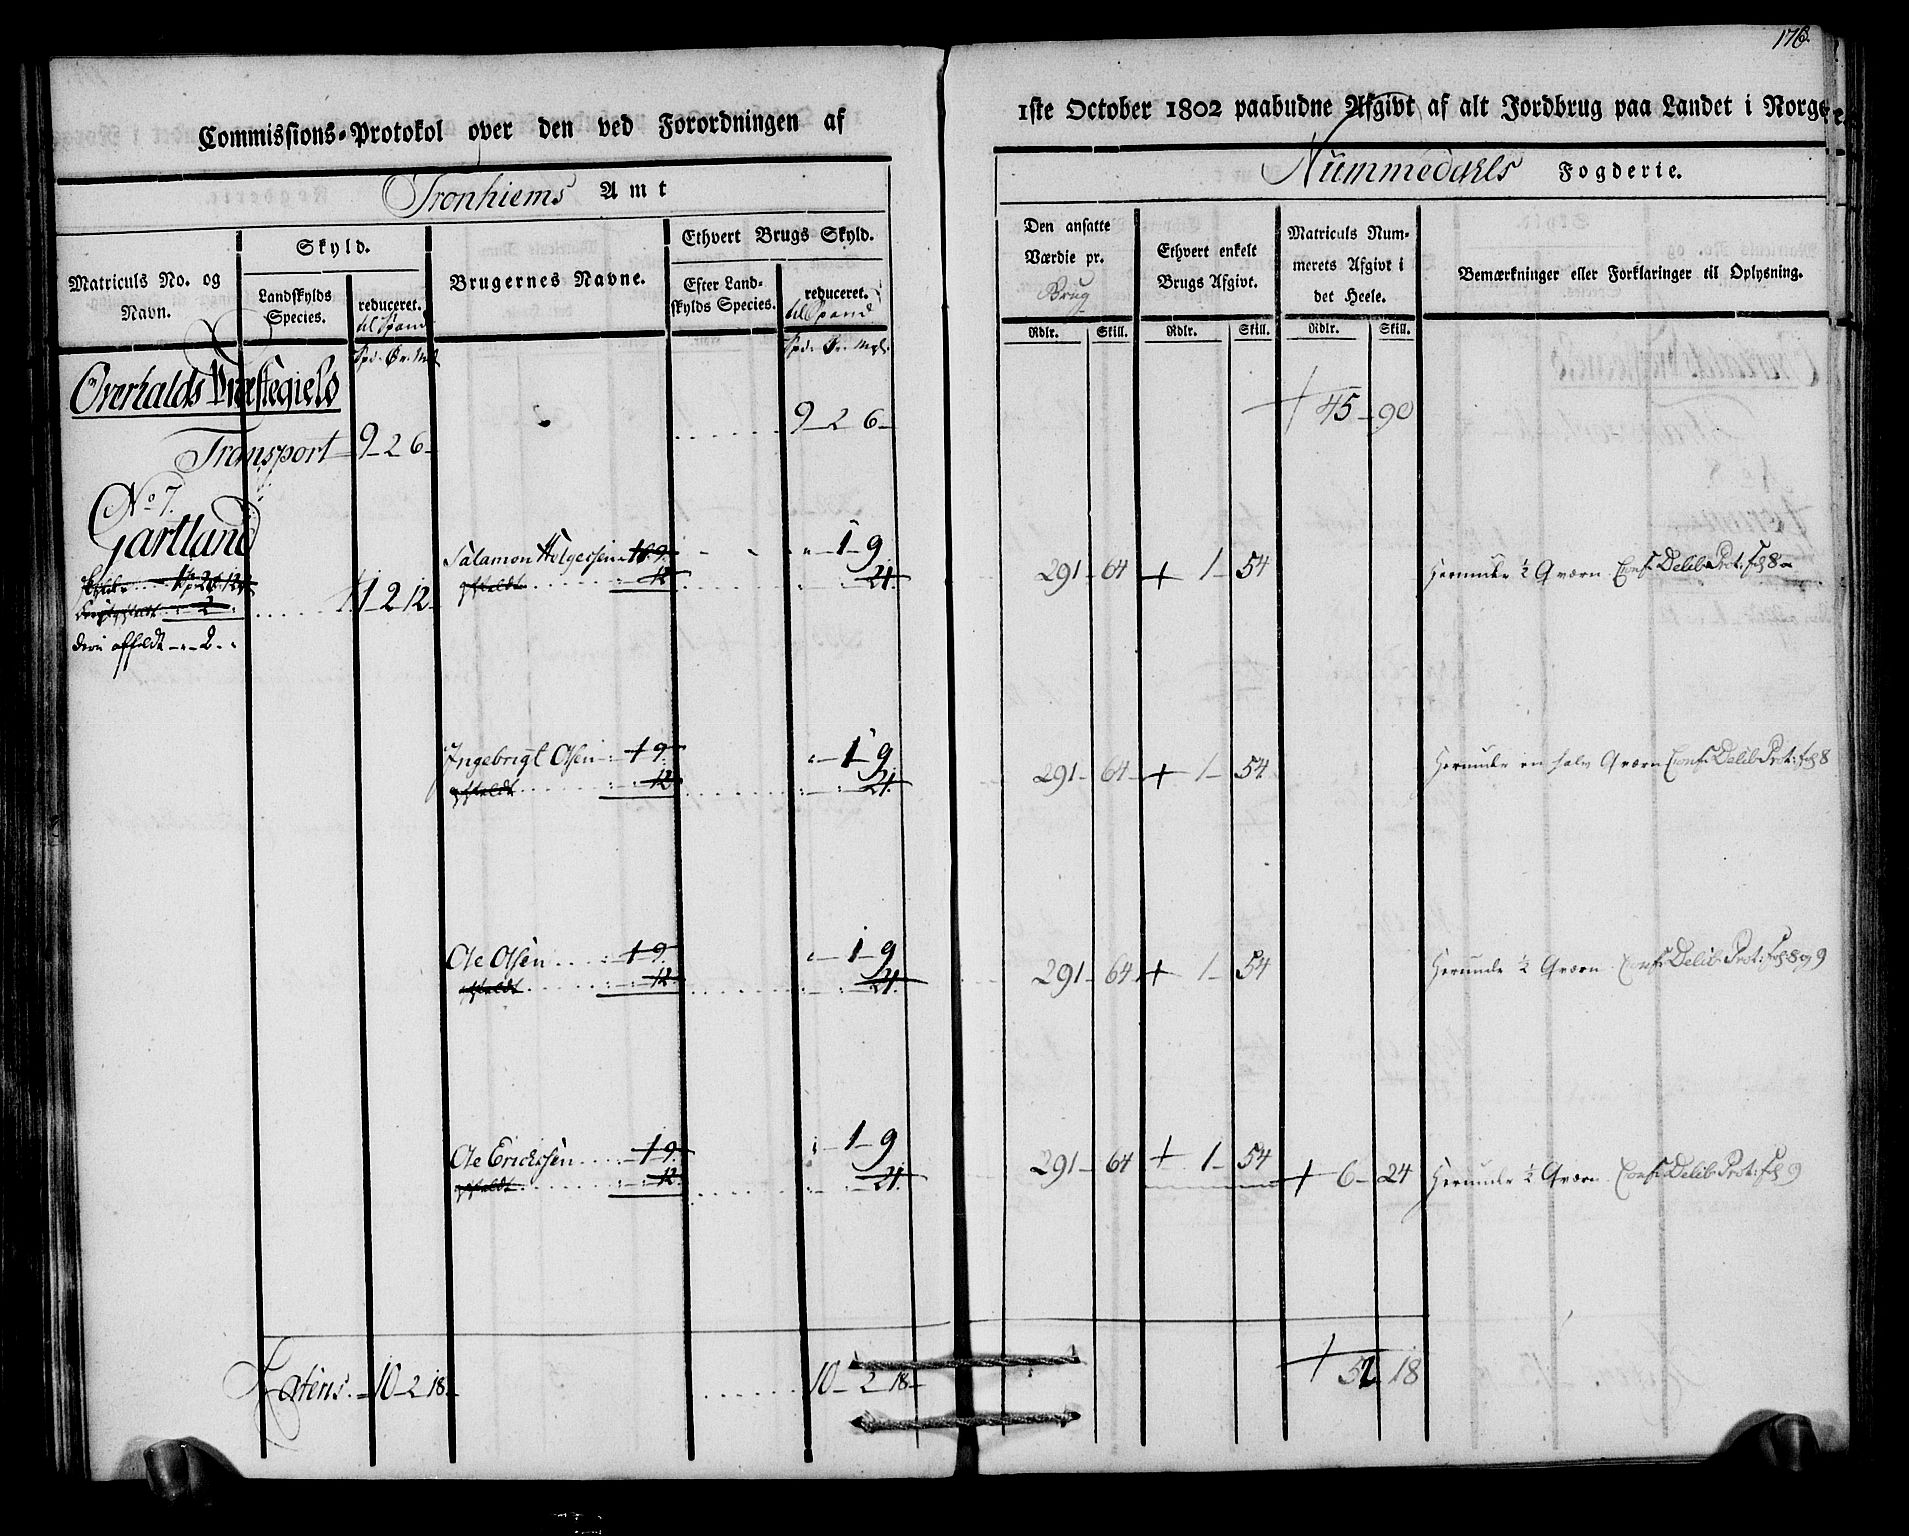 176.
Commissions-Protokol over den ved Forordningen af
1ste October 1802 paabudne Afgivt af alt Jordbrug paa Landet i Norge
Tronhiems Amt
Nummedahls Fogderie.
Matriculs No. og Navn.
Skyld.
Landskylds Species.
reduceret. til Spand
Brugernes Navne.
Ethvert Brugs Skyld.
Efter Landskylds Species.
reduceret. til Spand
Den ansatte Værdie pr. Brug
Ethvert enkelt Brugs Afgivt.
Matriculs Nummerets Afgivt i det Heele.
Bemærkninger eller Forklaringer til Oplysning.
Rdlr. Skill. Rdlr. Skill. Rdlr. Skill.
Spd. Ør. Mgl. Spd. Ør. Mgl.
Overhalds Præstegield
Transport 9 - 2 6 - 9 - 2 6 - + 45 - 90
No 7.
Gartland
1 2 12
2
deri affeldt - " - 2 - "
Salamon Helgessen 1 9 " - 1 - 9 291 - 64 + 1 - 54 Herunder ½ Qværn Conf: Delib: Prot: Fol 8
affeldt 12 21
Ingebrigt Olsen 1 9 " - 1 - 9 291 - 64 + 1 - 54 Herunder en halv Qværn Conf: Delib: Prot: Fol 8
affeldt 12 21
Ole Olsen 1 9 " - 1 - 9 291 - 64 + 1 - 54 Herunder ½ Qværn Conf: Delib: Prot: Fol 8 og 9
affeldt 12 21
Ole Ericksen 1 9 " - 1 - 9 291 - 64 + 1 - 54 + 6 - 24 Herunder ½ Qværn Conf: Delib: Prot: Fol 9
affeldt 12 21
Lateris. 10 - 2 18 - 10 - 2 18 - + 52 18